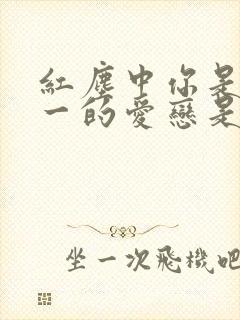 紅塵中你是
一的愛戀是
坐一次飛機吧